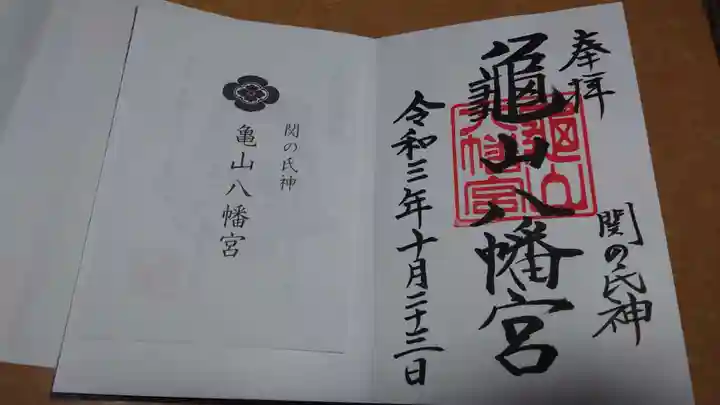 奉拝
関の氏神
龜山八幡宮
龜山八幡宮
令和三年十月二十三日
関の氏神
亀山八幡宮